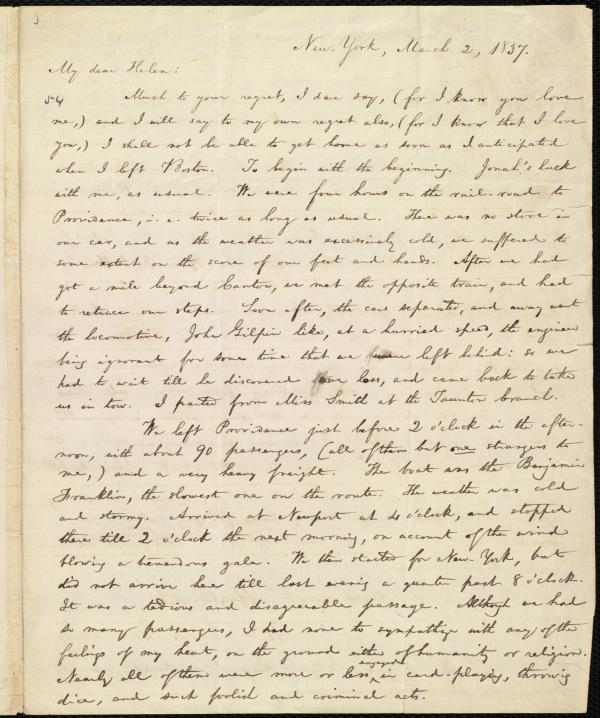 New-York, March 2, 1837.
My dear Helen:
54 Much to your regret, I dare say, (for I know you love
me,) and I will say to my own regret also, (for I know that I love
you,) I shall not be able to get home as soon as I anticipated
when I left Boston. To begin with the beginning. Jonah's luck
with me, as usual. We were four hours on the rail-road to
Providence, i. e. twice as long as usual. There was no stove in
our car, and as the weather was excessively cold, we suffered to
some extent on the score of our feet and hands. After we had
got a mile beyond Canton, we met the opposite train, and had
to retrace our steps. Soon after, the cars separated, and away went
the locomotive, John Gilpin like, at a hurried speed, the engineer
being ignorant for some time that we were left behind: so we
had to wait till he discovered our loss, and came back to take
us in tow. I parted from Miss Smith at the Taunton branch.
We left Providence just before 2 o'clock in the after-
noon, with about 90 passengers, (all of them but one strangers to
me,) and a very heavy freight. The boat was the Benjamin
Franklin, the slowest one on the route. The weather was cold
and stormy. Arrived at Newport at 4 o'clock, and stopped
there till 2 o'clock the next morning, on account of the wind
blowing a tremendous gale. We then started for New York, but
did not arrive here till last evening a quarter past 8 o'clock.
It was a tedious and disagreeable passage. Although we had
so many passengers, I had none to sympathize with any of the
feelings of my heart, on the ground either of humanity or religion.
Nearly all of them were more or less engaged in card-playing, throwing
dice, and such foolish and criminal acts.